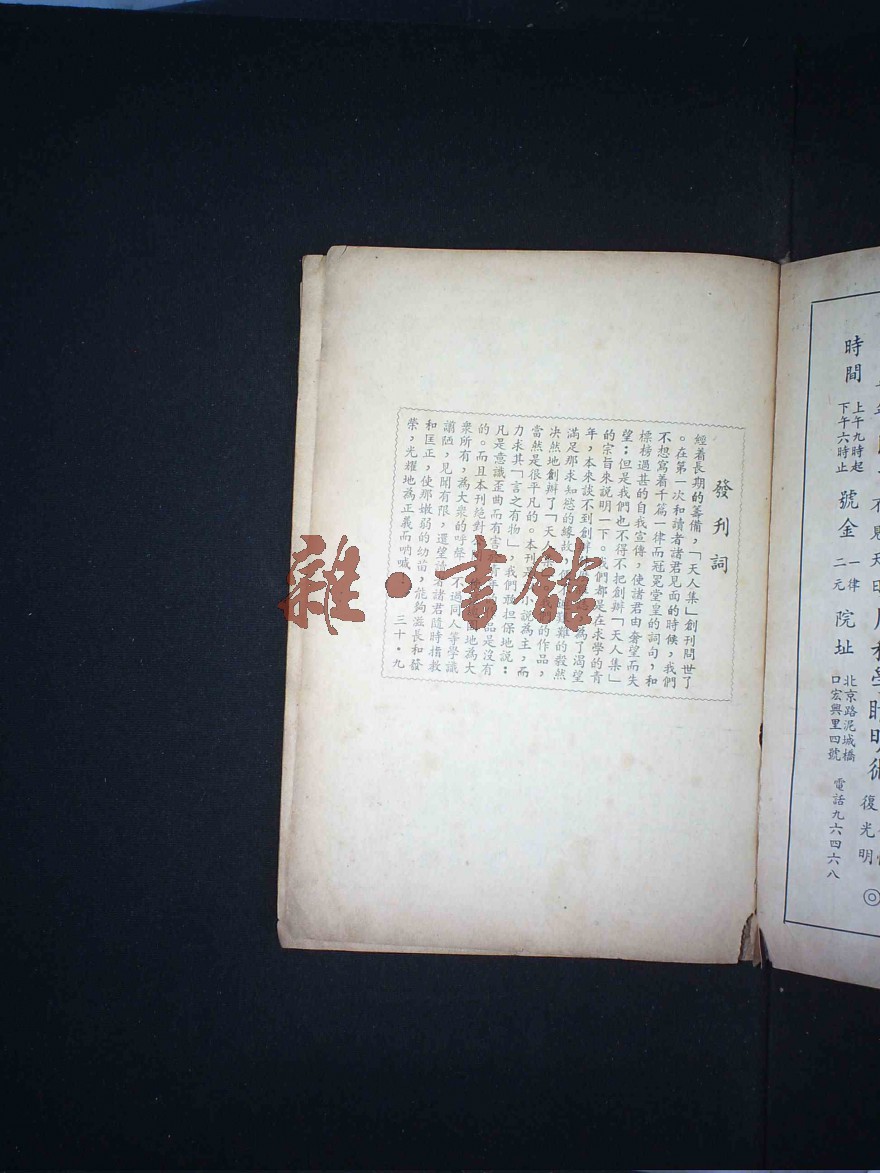 發刊詞
經着長期的籌備，「天人集」創刊問世了
。在第一次和讀者諸君見面的時候，我們
不想寫着千篇一律而冠冕堂皇的詞句，和
標榜過甚的自我宣傳，使諸君由奢望而失
望；但是我們也不得不把創辦「天人集」
的宗旨來說明一下。我們都是在求學的青
年，本來談不到創辦 為了渴望
滿足那求知慾的緣故， 難的毅然
決然地創辦了「天人集 的作品，
當然是很平凡的。本刊 小說為主，而
力求其「言之有物」，我們敢担保地說：
凡是意識歪曲而有害 品是沒有
的。而且本刊絕對 地為大
衆所有，為大衆的呼聲 不過同人等學識
譾陋，見聞有限，還望讀者諸君隨時指教
和匡正，使那嫩弱的幼苗，能夠滋長和發
榮，光耀地為正義而吶喊 三十・九
雜・書館
時間 上午九時起 下午六時止 號金 一律二元 院址 北京路泥城橋 口宏興里四號 電話九六四六八
復光明